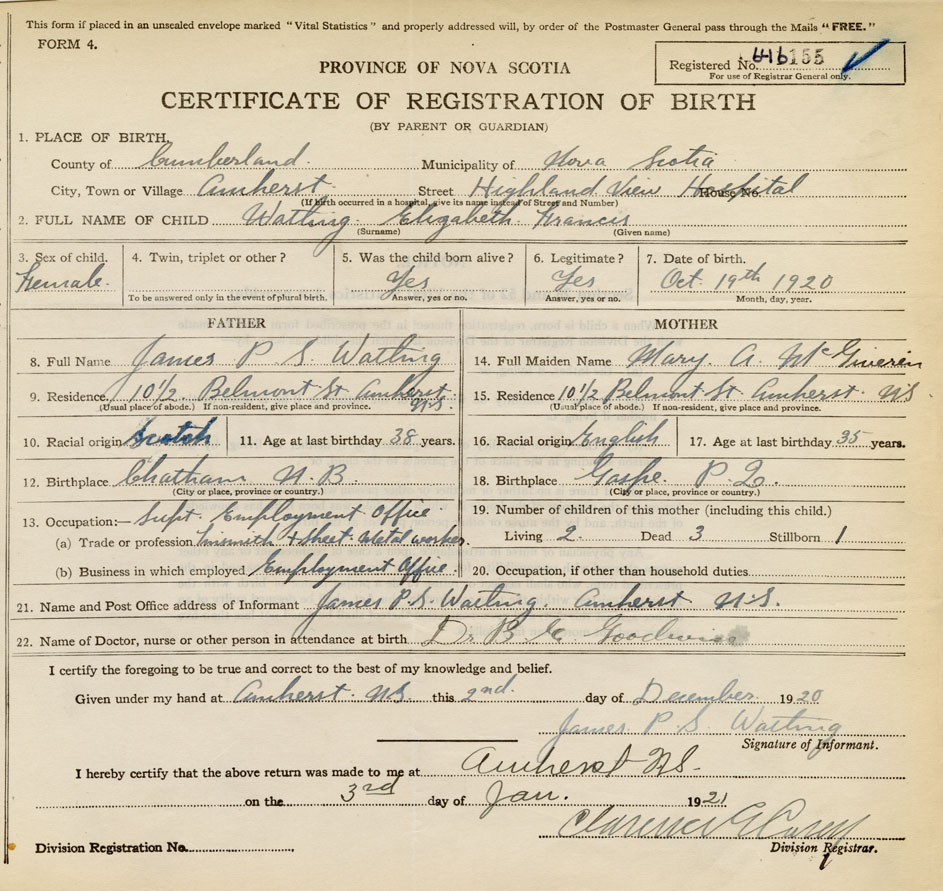 This form if placed in an unsealed envelope marked "Vital Statistics" and properly addressed will, by order of the Postmaster General pass through the Mails "FREE."
FORM 4.
Registered No. 155
For use of Registrar General only.
PROVINCE OF NOVA SCOTIA
CERTIFICATE OF REGISTRATION OF BIRTH
(BY PARENT OR GUARDIAN)
1. PLACE OF BIRTH,
County of Cumberland. Municipality of Nova Scotia
City, Town or Village Amherst. Street Highland View Hospital House No.
(If birth occurred in a hospital, give its name instead of Street and Number)
2. FULL NAME OF CHILD Watling Elizabeth Francis
(Surname) (Given name)
3. Sex of child. 4. Twin, triplet or other? 5. Was the child born alive? 6. Legitimate? 7. Date of birth.
Female. Yes Yes Oct. 19th 1920
To be answered only in the event of plural birth. Answer, yes or no. Answer, yes or no. Month, day, year.
FATHER MOTHER
8. Full Name James P. S. Watling 14. Full Maiden Name Mary A.
9. Residence 10½ Belmont St Amherst N.S. 15. Residence 10½ Belmont St Amherst NS
(Usual place of abode.) If non-resident, give place and province. (Usual place of abode.) If non-resident, give place and province.
10. Racial origin Scotch 11. Age at last birthday 38 years. 16. Racial origin English 17. Age at last birthday 35 years.
12. Birthplace Chatham N.B. 18. Birthplace Gaspe. P.Q.
(City or place, province or country.) (City or place, province or country.)
13. Occupation:— Supt. Employment Office 19. Number of children of this mother (including this child.)
(a) Trade or profession Tinsmith & Sheet Metal worker. Living 2 Dead 3 Stillborn 1
(b) Business in which employed Employment Office. 20. Occupation, if other than household duties
21. Name and Post Office address of Informant James P.S. Watling. Amherst N.S.
22. Name of Doctor, nurse or other person in attendance at birth Dr. B. Goodwin
I certify the foregoing to be true and correct to the best of my knowledge and belief.
Given under my hand at Amherst. N.S. this 2nd. day of December 1920
James P. S. Watling
Signature of Informant.
I hereby certify that the above return was made to me at Amherst NS.
on the 3rd day of Jan. 1921
Clarence
Division Registration No. Division Registrar.